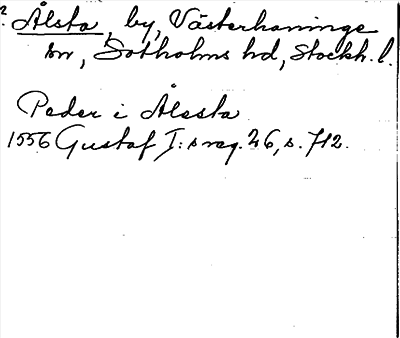 Ålsta, by, Västerhaninge
sn, Sotholms hd, Stockh. l.
Peder i Ålssta
1556 Gustaf I:s reg. 26, s. 712.